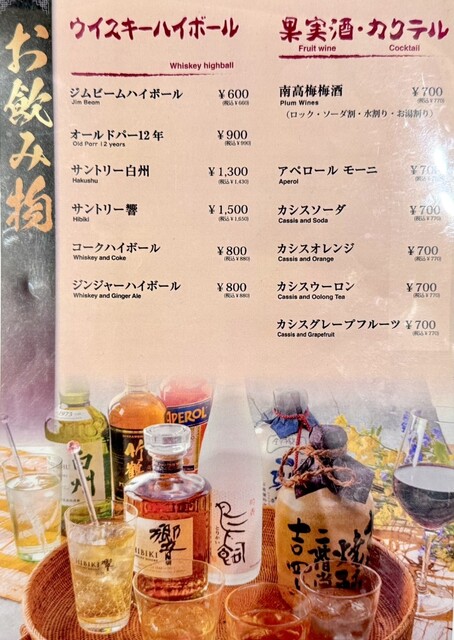 お飲み物
ウイスキーハイボール
Whiskey highball
ジムビームハイボール ¥600
Jim Beam (税込¥660)
オールドパー12年 ¥900
Old Parr 12 years (税込¥990)
サントリー白州 ¥1,300
Hakushu (税込¥1,430)
サントリー響 ¥1,500
Hibiki (税込¥1,650)
コークハイボール ¥800
Whiskey and Coke (税込¥880)
ジンジャーハイボール ¥800
Whiskey and Ginger Ale (税込¥880)
果実酒・カクテル
Fruit wine Cocktail
南高梅梅酒 ¥700
Plum Wines (税込¥770)
（ロック・ソーダ割・水割り・お湯割り）
アペロール モーニ ¥700
Aperol (税込¥770)
カシスソーダ ¥700
Cassis and Soda (税込¥770)
カシスオレンジ ¥700
Cassis and Orange (税込¥770)
カシスウーロン ¥700
Cassis and Oolong Tea (税込¥770)
カシスグレープフルーツ ¥700
Cassis and Grapefruit (税込¥770)
APEROL
白州
竹鶴
響
HIBIKI
HIBIKI